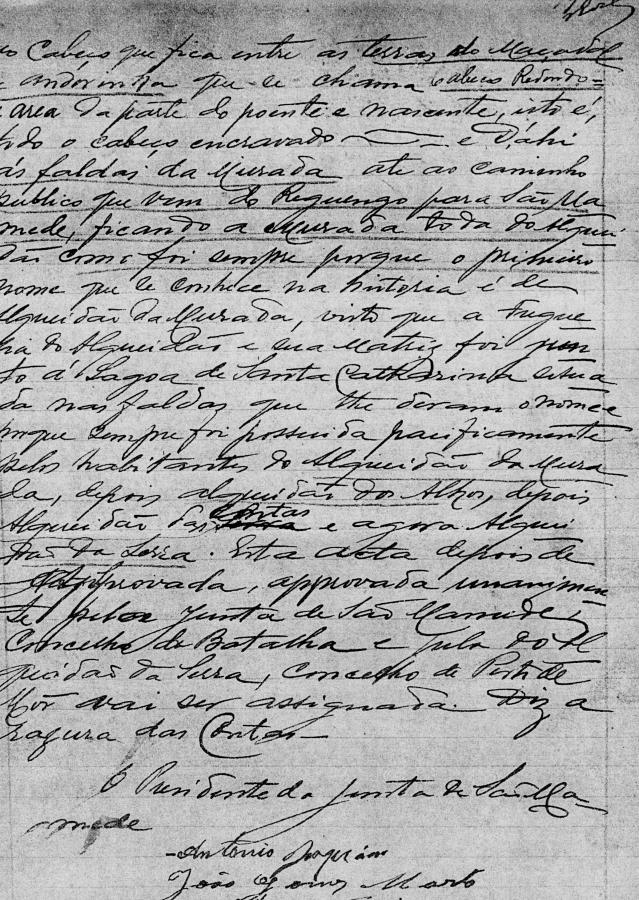 o Cabeço que fica entre as terras do Maçadal
e andorinha que se chama Cabeço Redondo=
area da parte do poente e nascente, isto é,
todo o cabeço encravado — e D'ahi
ás faldas da Murada até ao caminho
publico que vem do Reguengo para São Ma
mede, ficando a Murada toda do Alquei
dão como foi sempre porque o primeiro
nome que se conhece na historia é de
Alqueidão da Murada, visto que a Fregue
zia do Alqueidão e sua Matriz foi jun
to á Lagoa de Santa Catharina situa
da nas faldas que lhe deram o nome e
porque sempre foi possuida pacificamente
pelos habitantes do Alqueidão da Mura
da, depois alqueidão dos Alhos, depois
Alqueidão das Contas e agora Alquei
dão da Serra. Esta acta depois de
approvada, approvada unanimen
te pela Junta de São Mamede,
Concelho de Batalha e pela do Al
queidão da Serra, concelho de Porto de
Mór vai ser assignada. Diz a
razura das Contas—
O Presidente da Junta de São Ma-
mede
-António
João Gomes Marto